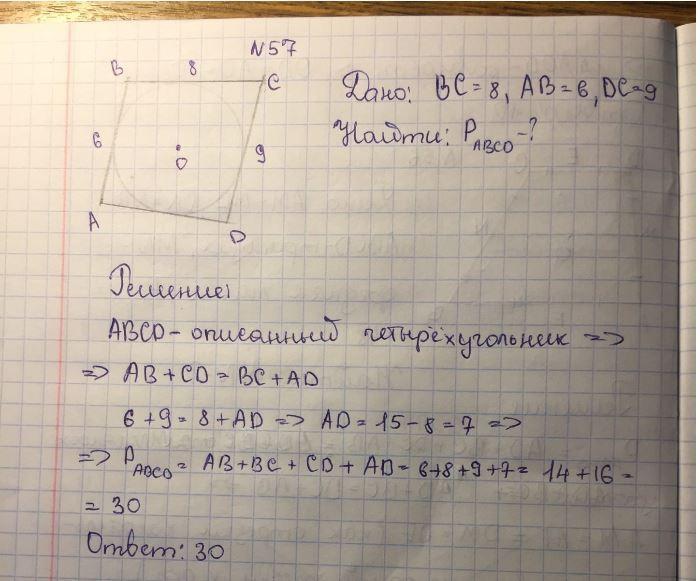 N57
B 8 C
Дано: BC = 8, AB = 6, DC = 9
6 9
Найти: P ABCD - ?
O
A
D
Решение:
ABCD - описанный четырёхугольник =>
=> AB + CD = BC + AD
6 + 9 = 8 + AD => AD = 15 - 8 = 7 =>
=> P ABCD = AB + BC + CD + AD = 6+8+9+7 = 14 + 16 =
= 30
Ответ: 30